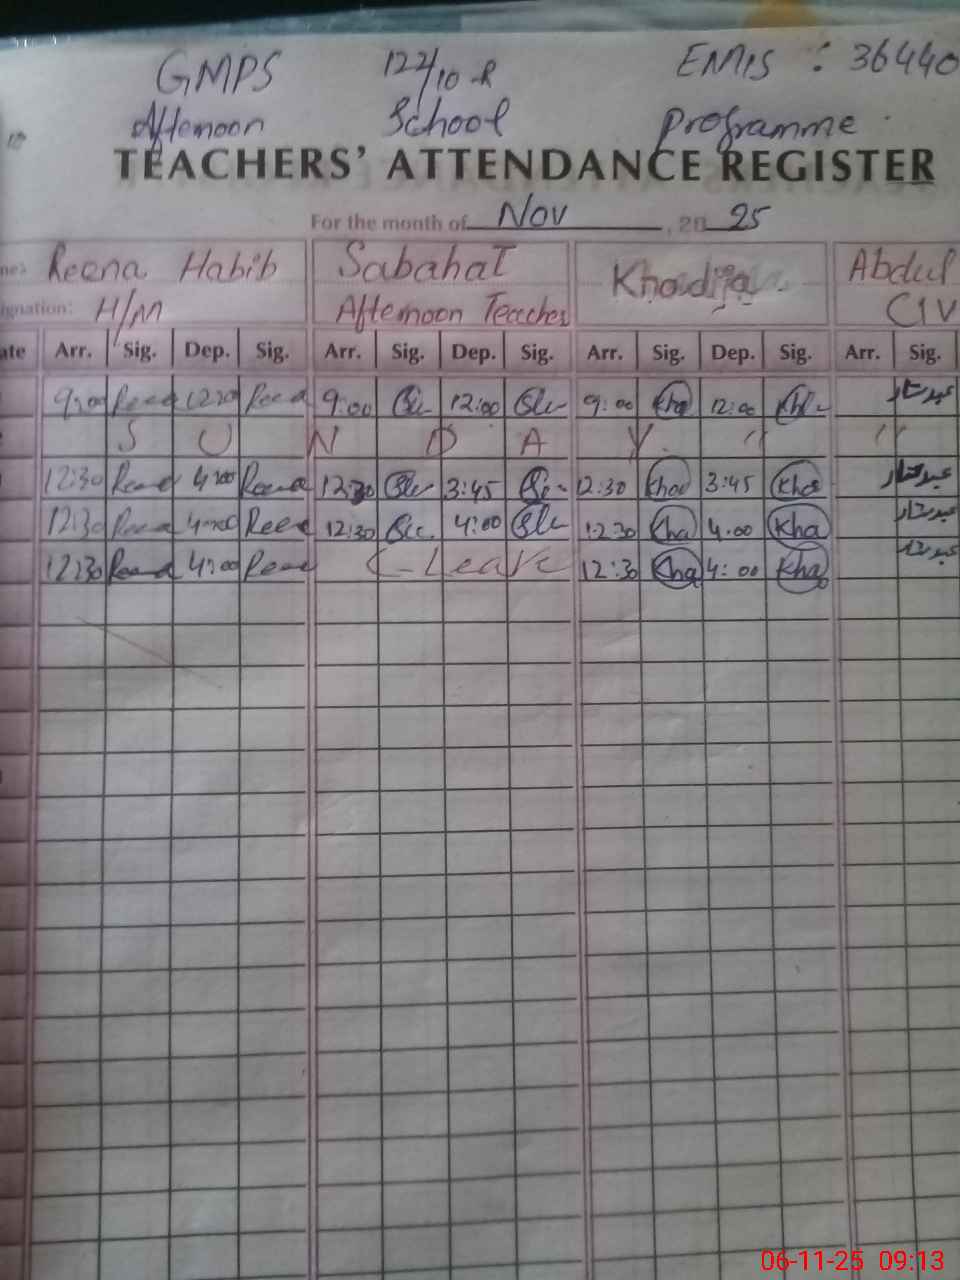 GMPS 122/10-R EMIS : 36440
Afternoon School Programme
TEACHERS' ATTENDANCE REGISTER
For the month of Nov, 20 25
me: Reena Habib Sabahat Khadija Abdul
ignation: H/M Afternoon Teacher CIV
ate Arr. Sig. Dep. Sig. Arr. Sig. Dep. Sig. Arr. Sig. Dep. Sig. Arr. Sig.
9:00 Reena Reena 9:00 12:00 9:00 Kha 12:00 Kha عبدستار
S U N D A Y " "
12:30 Reena 4:00 Reena 12:30 3:45 12:30 Kha 3:45 Kha عبدستار
12:30 Reena 4:00 Reena 12:30 4:00 12:30 Kha 4:00 Kha عبدستار
12:30 Reena 4:00 Reena Leave 12:30 Kha 4:00 Kha عبدستار
06-11-25 09:13